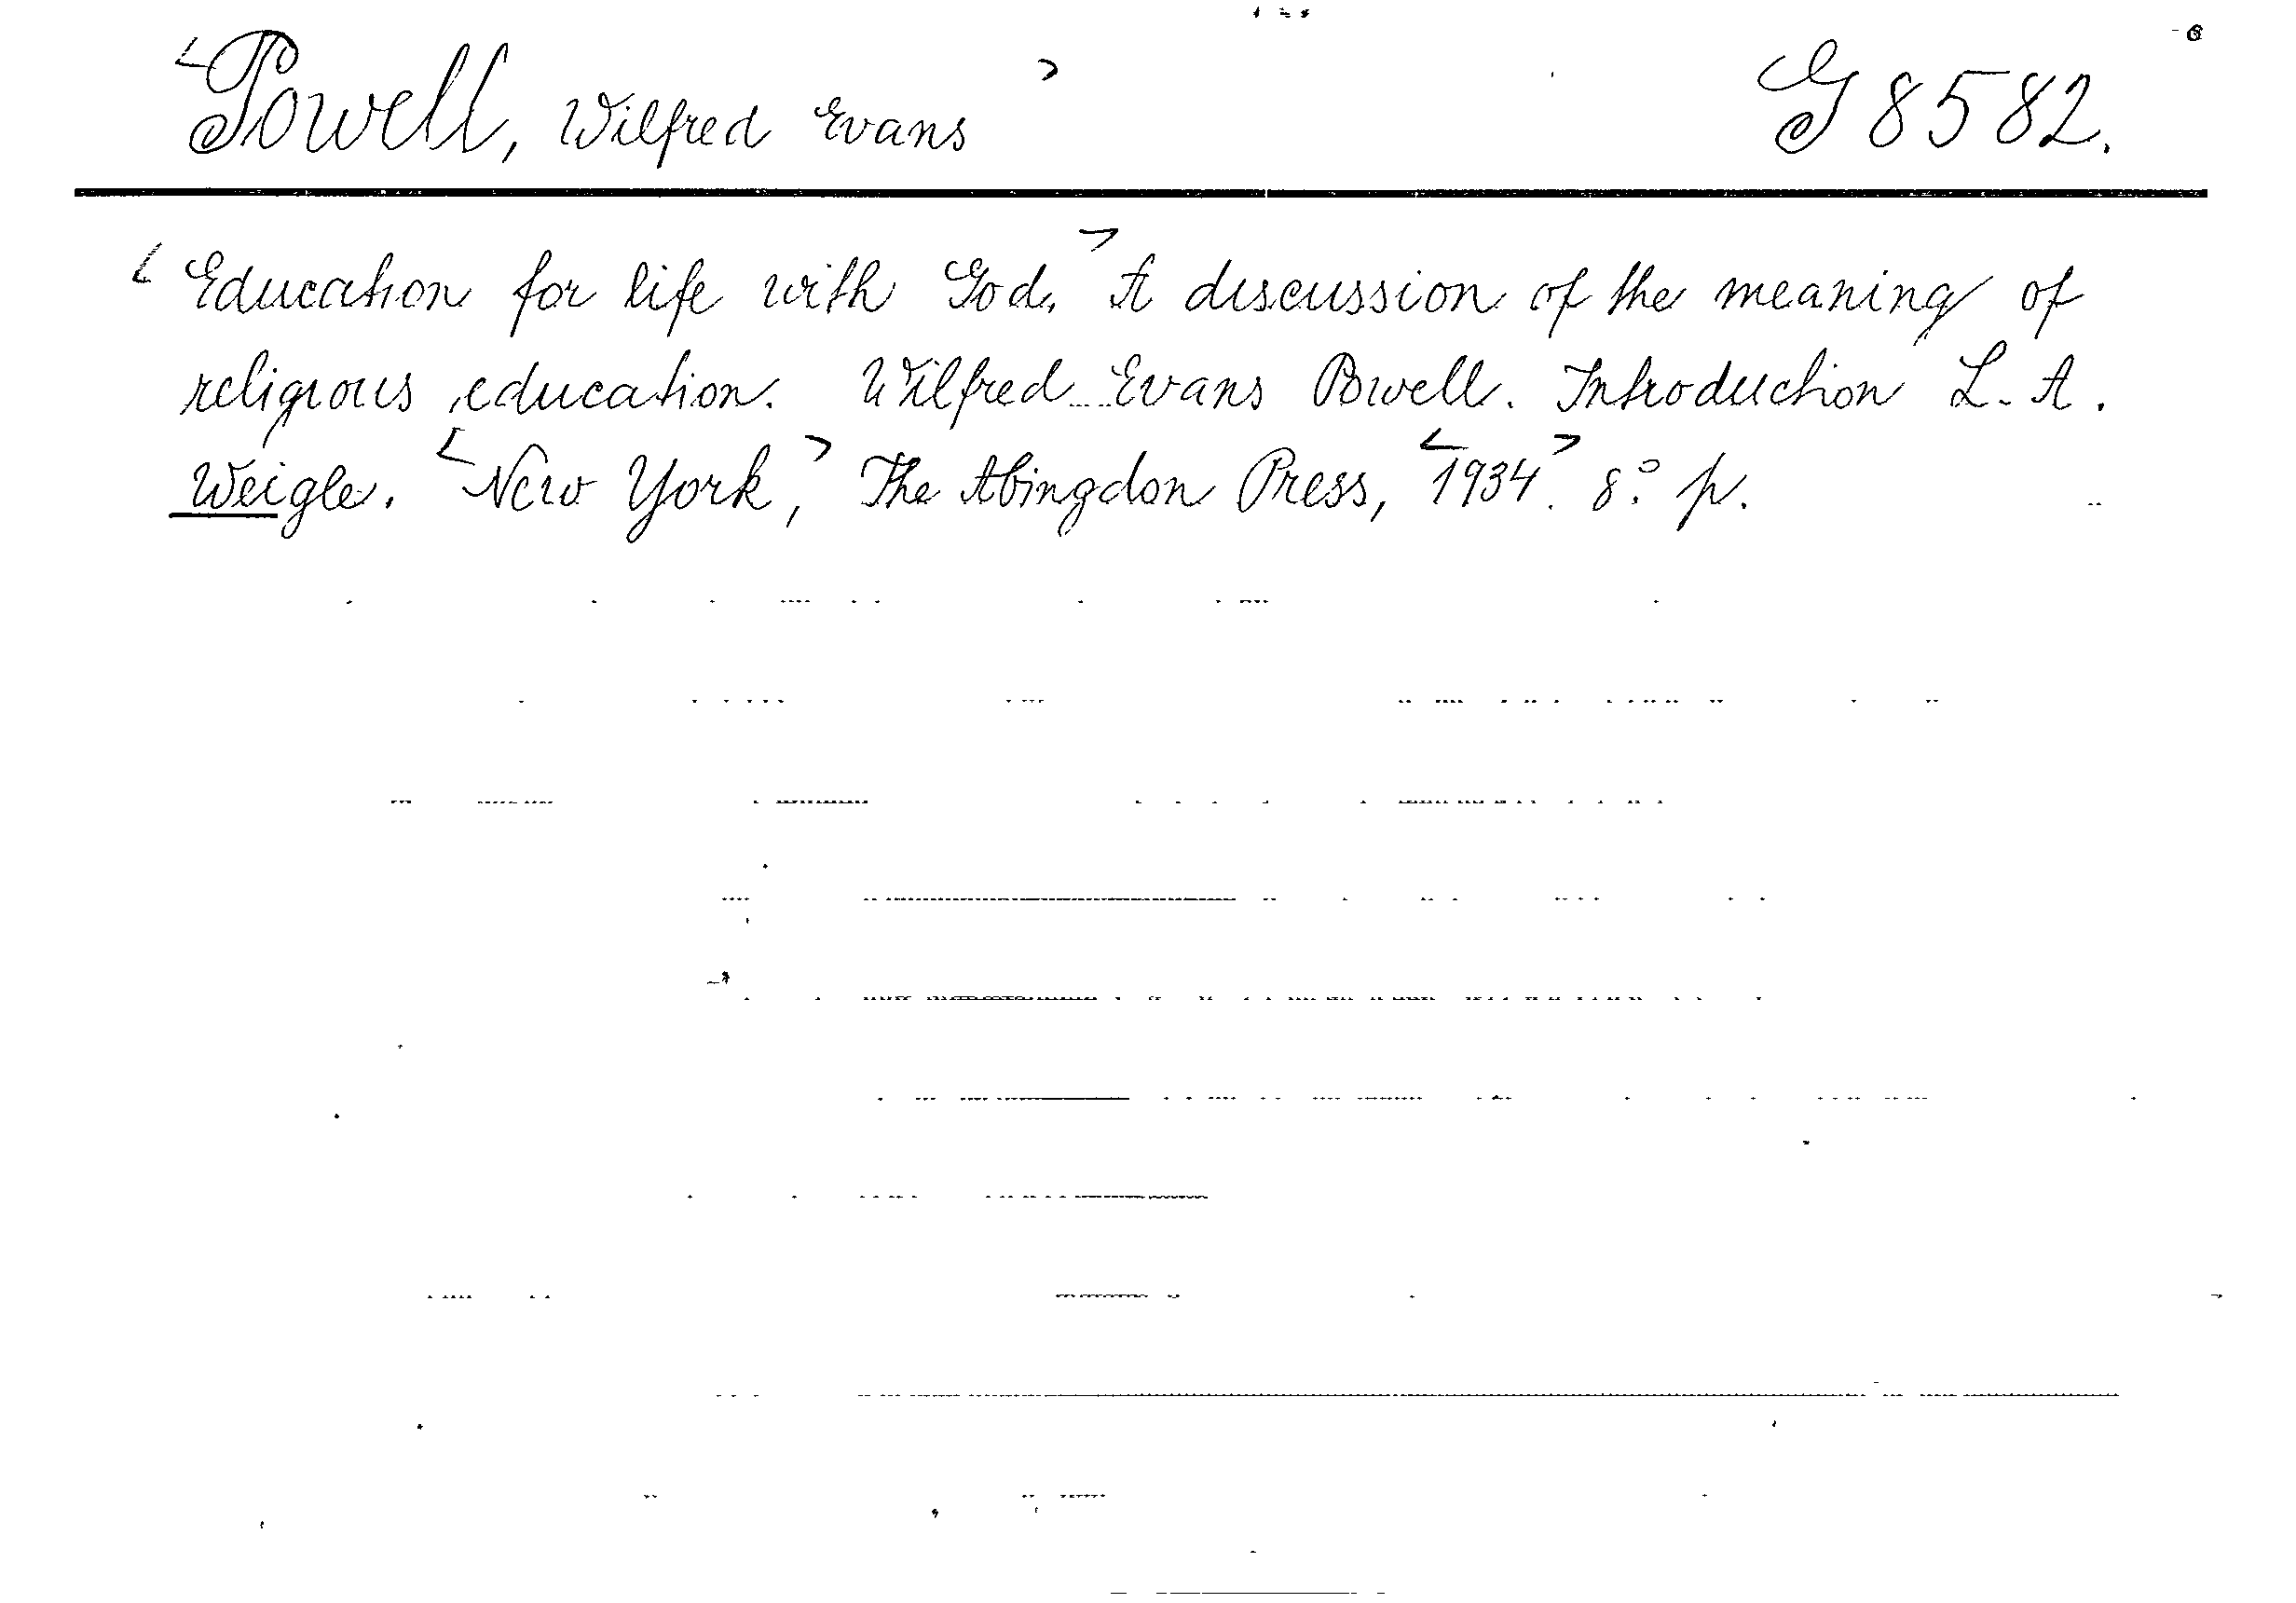 <Powell, Wilfred Evans> G 8582.
<Education for life with God.> A discussion of the meaning of
religious education. Wilfred Evans Powell. Introduction L. A.
Weigle. <New York,> The Abingdon Press, <1934>. 8:° p.